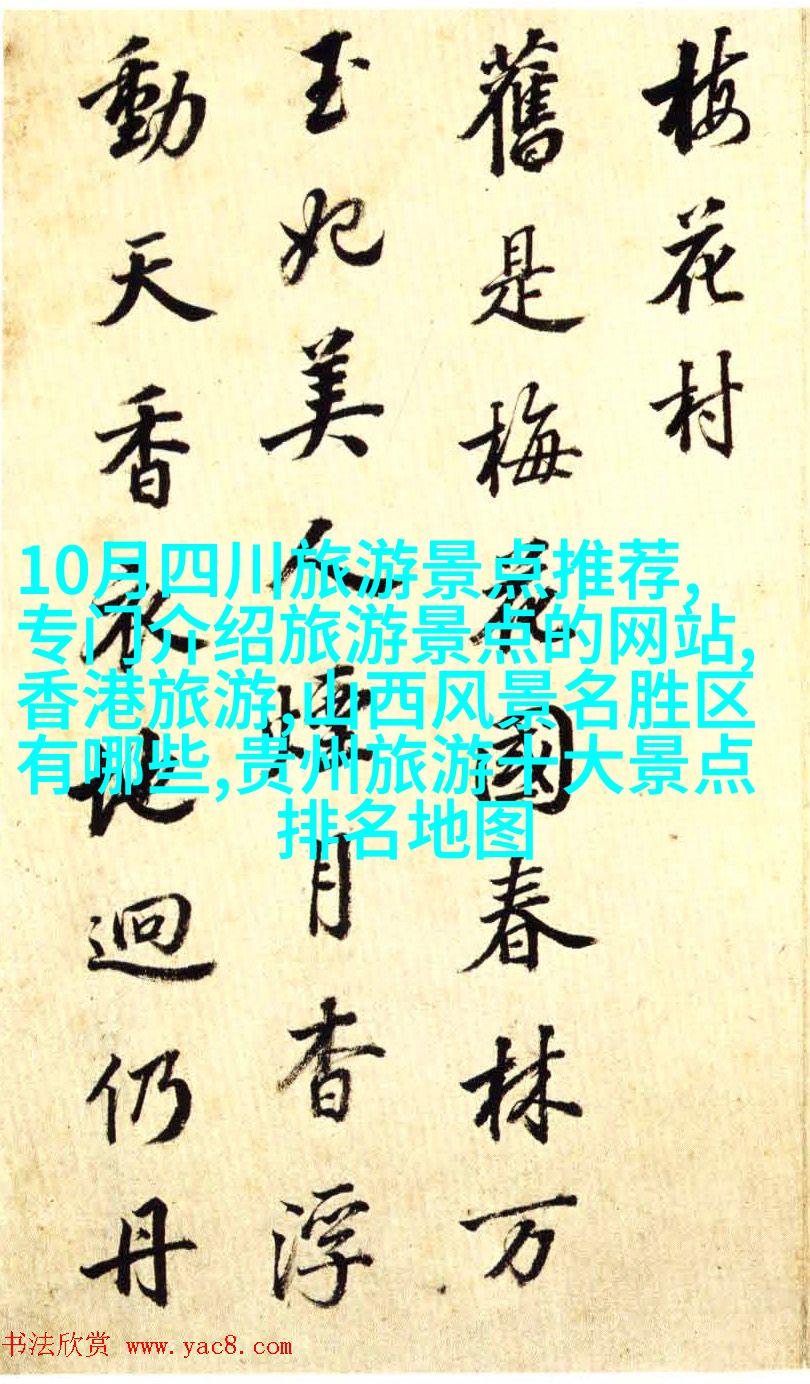 梅花村
舊是梅花國春林万
玉妃美人煙月杳浮
動天香衣地迴仍丹
10月四川旅游景点推荐,
专门介绍旅游景点的网站,
香港旅游,山西风景名胜区
有哪些,贵州旅游十大景点
排名地图
书法欣赏 www.yac8.com